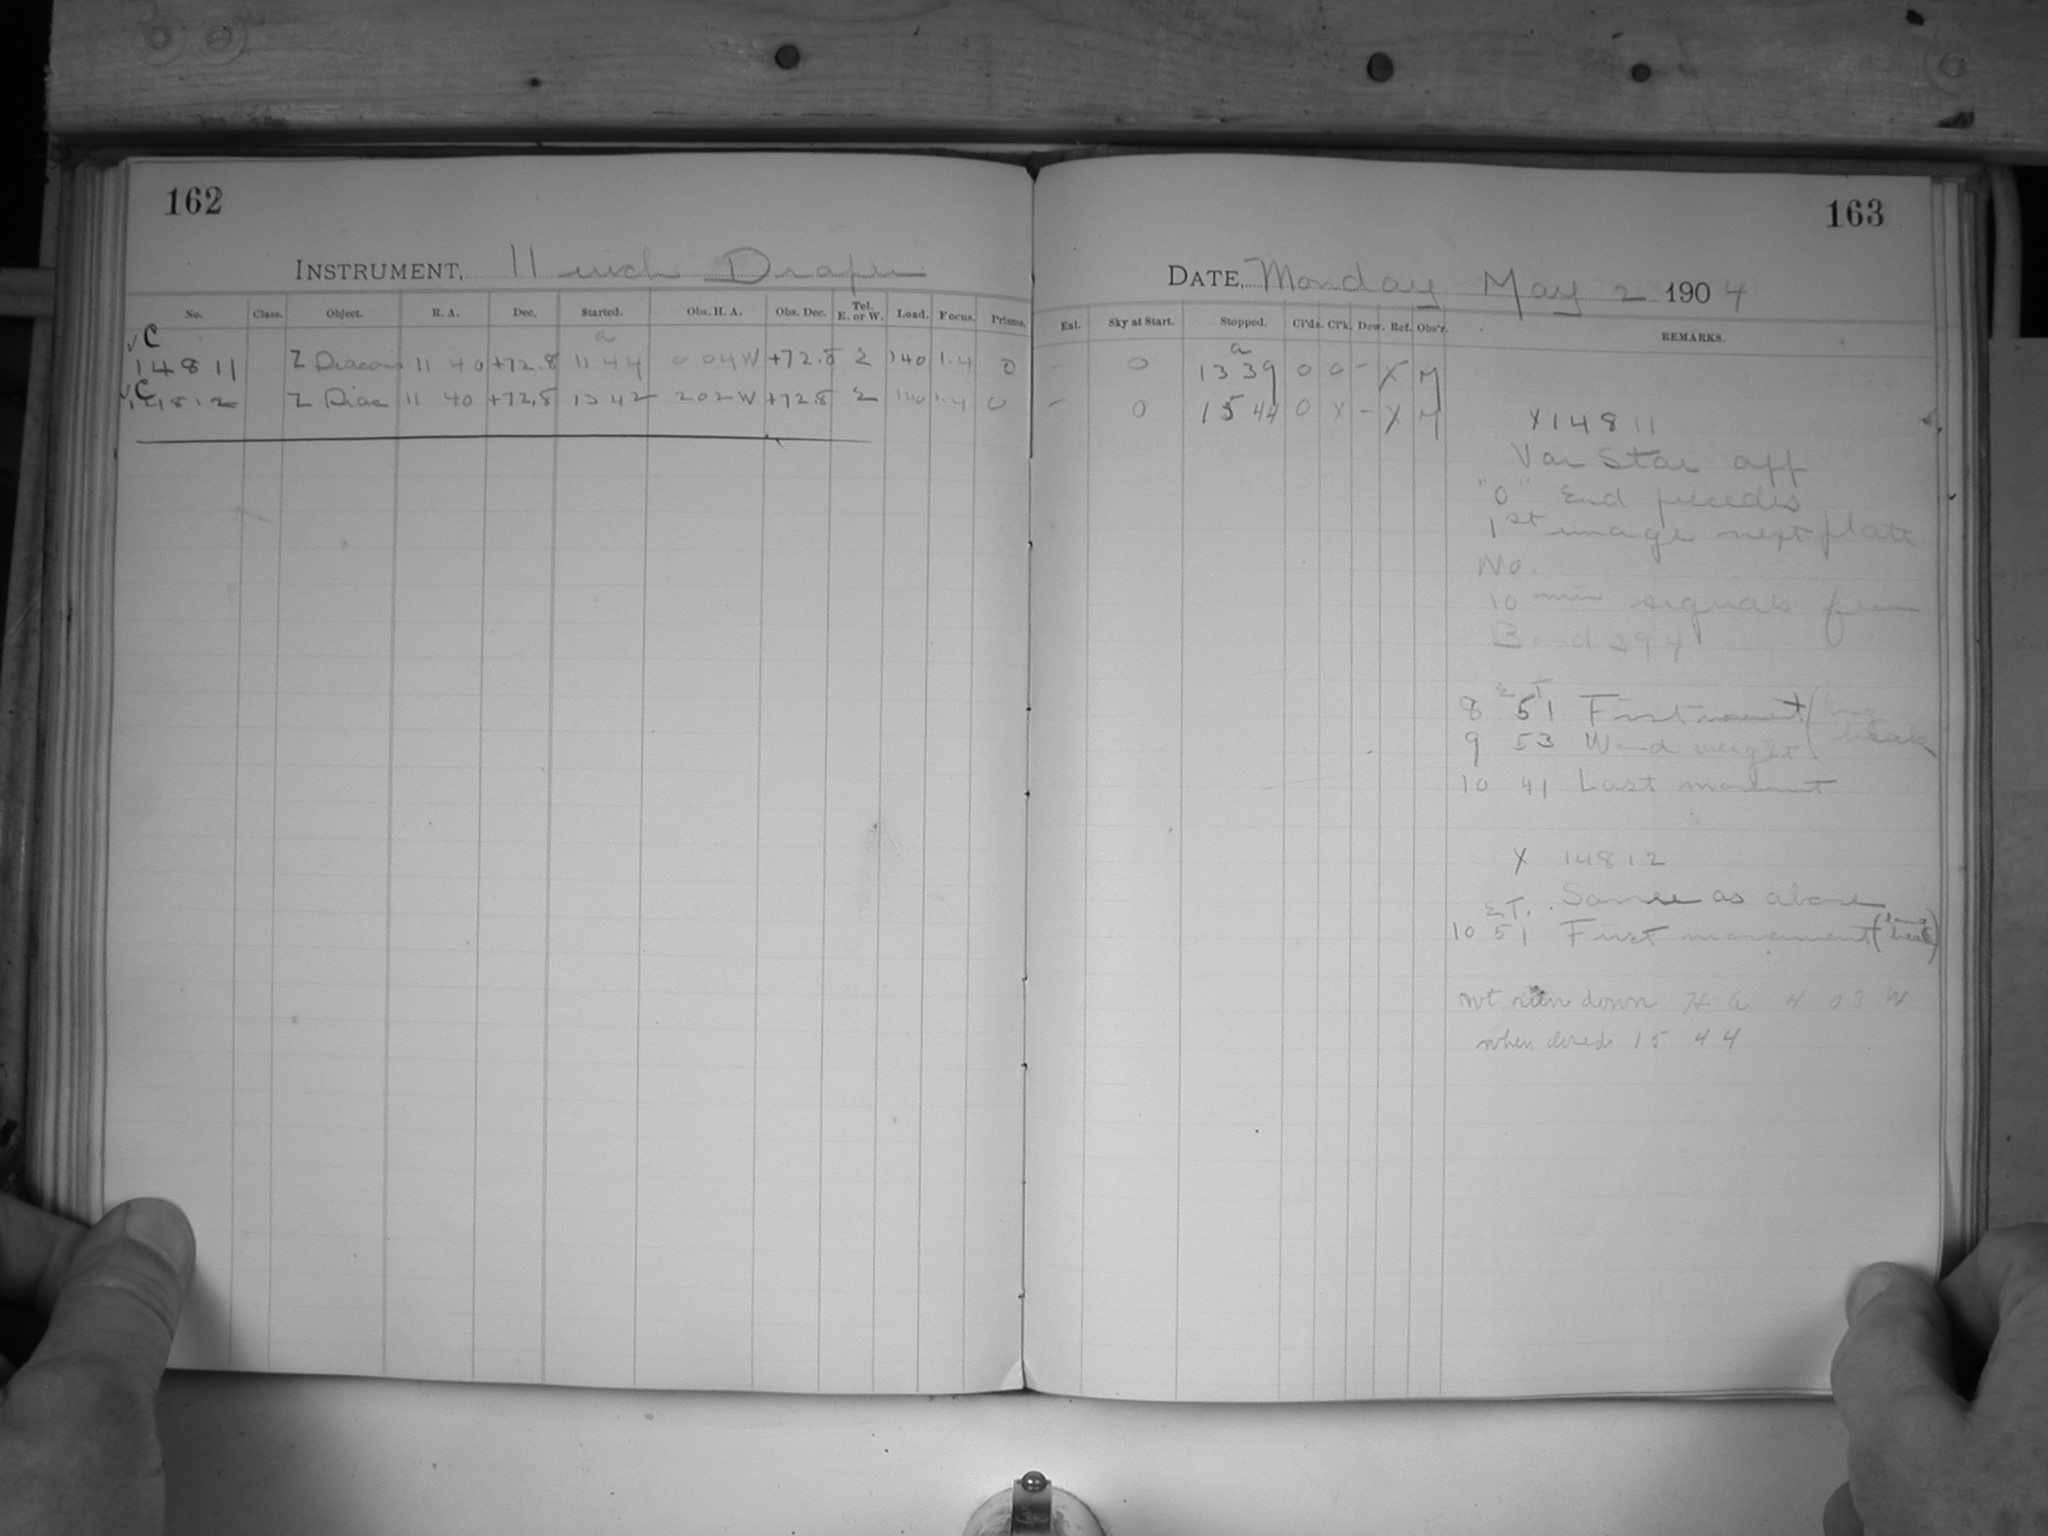 162
INSTRUMENT, 11 inch Draper
No. Class. Object. R. A. Dec. Started. Obs. H. A. Obs. Dec. Tel. E. or W. Lead. Focus. Prisms.
√C
14811 Z Draconis 11 40 +72.8 a 11 44 0 04 W +72.8 E 140 1.4 0
√C
14812 Z Drac 11 40 +72.8 13 42 2 02 W +72.8 E 140 1.4 0
163
DATE, Monday May 2 1904
Exl. Sky at Start. Stopped. Cl'ds. Cl'k. Dew. Ref. Obs'r. REMARKS.
- 0 a 13 39 0 0 - X M
- 0 15 44 0 X - X M
X 14811
Var Star app
"0" End precedes
1st image next plate
No.
10 min signals from
Bond 394
E. T.
8 51 First movement (long break
9 53 Wind weight
10 41 Last movement
X 14812
Same as above
E T.
10 51 First movement (long break)
wt run down H A 4 03 W
when closed 15 44